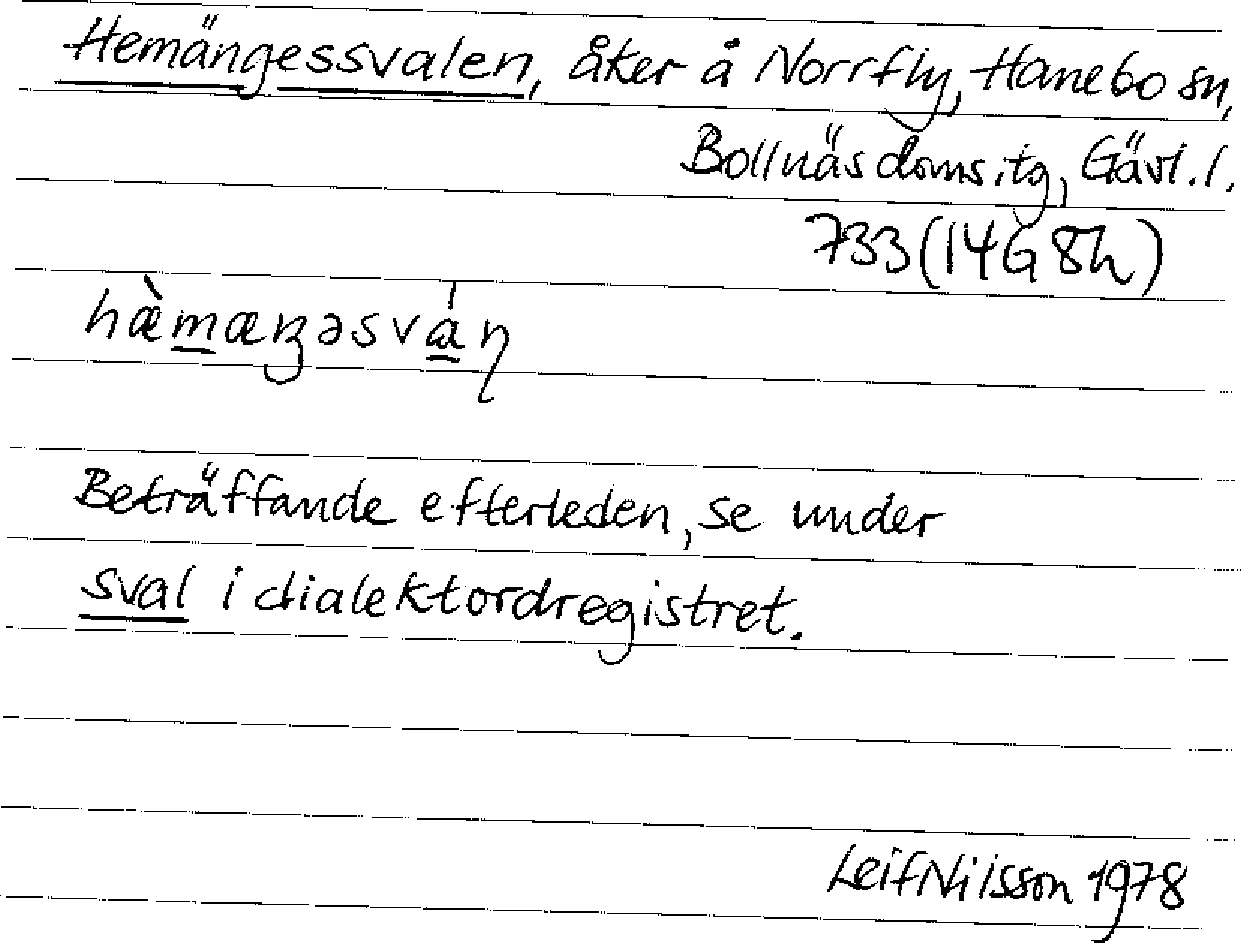 Hemängessvalen, åker å Norrfly, Hanebo sn,
Bollnäs domsitg, Gävl. l.
733 (14G 8h)
hæ̀m̲æŋəsvá̳ɳ
Beträffande efterleden, se under
sval i dialektordregistret.
Leif Nilsson 1978